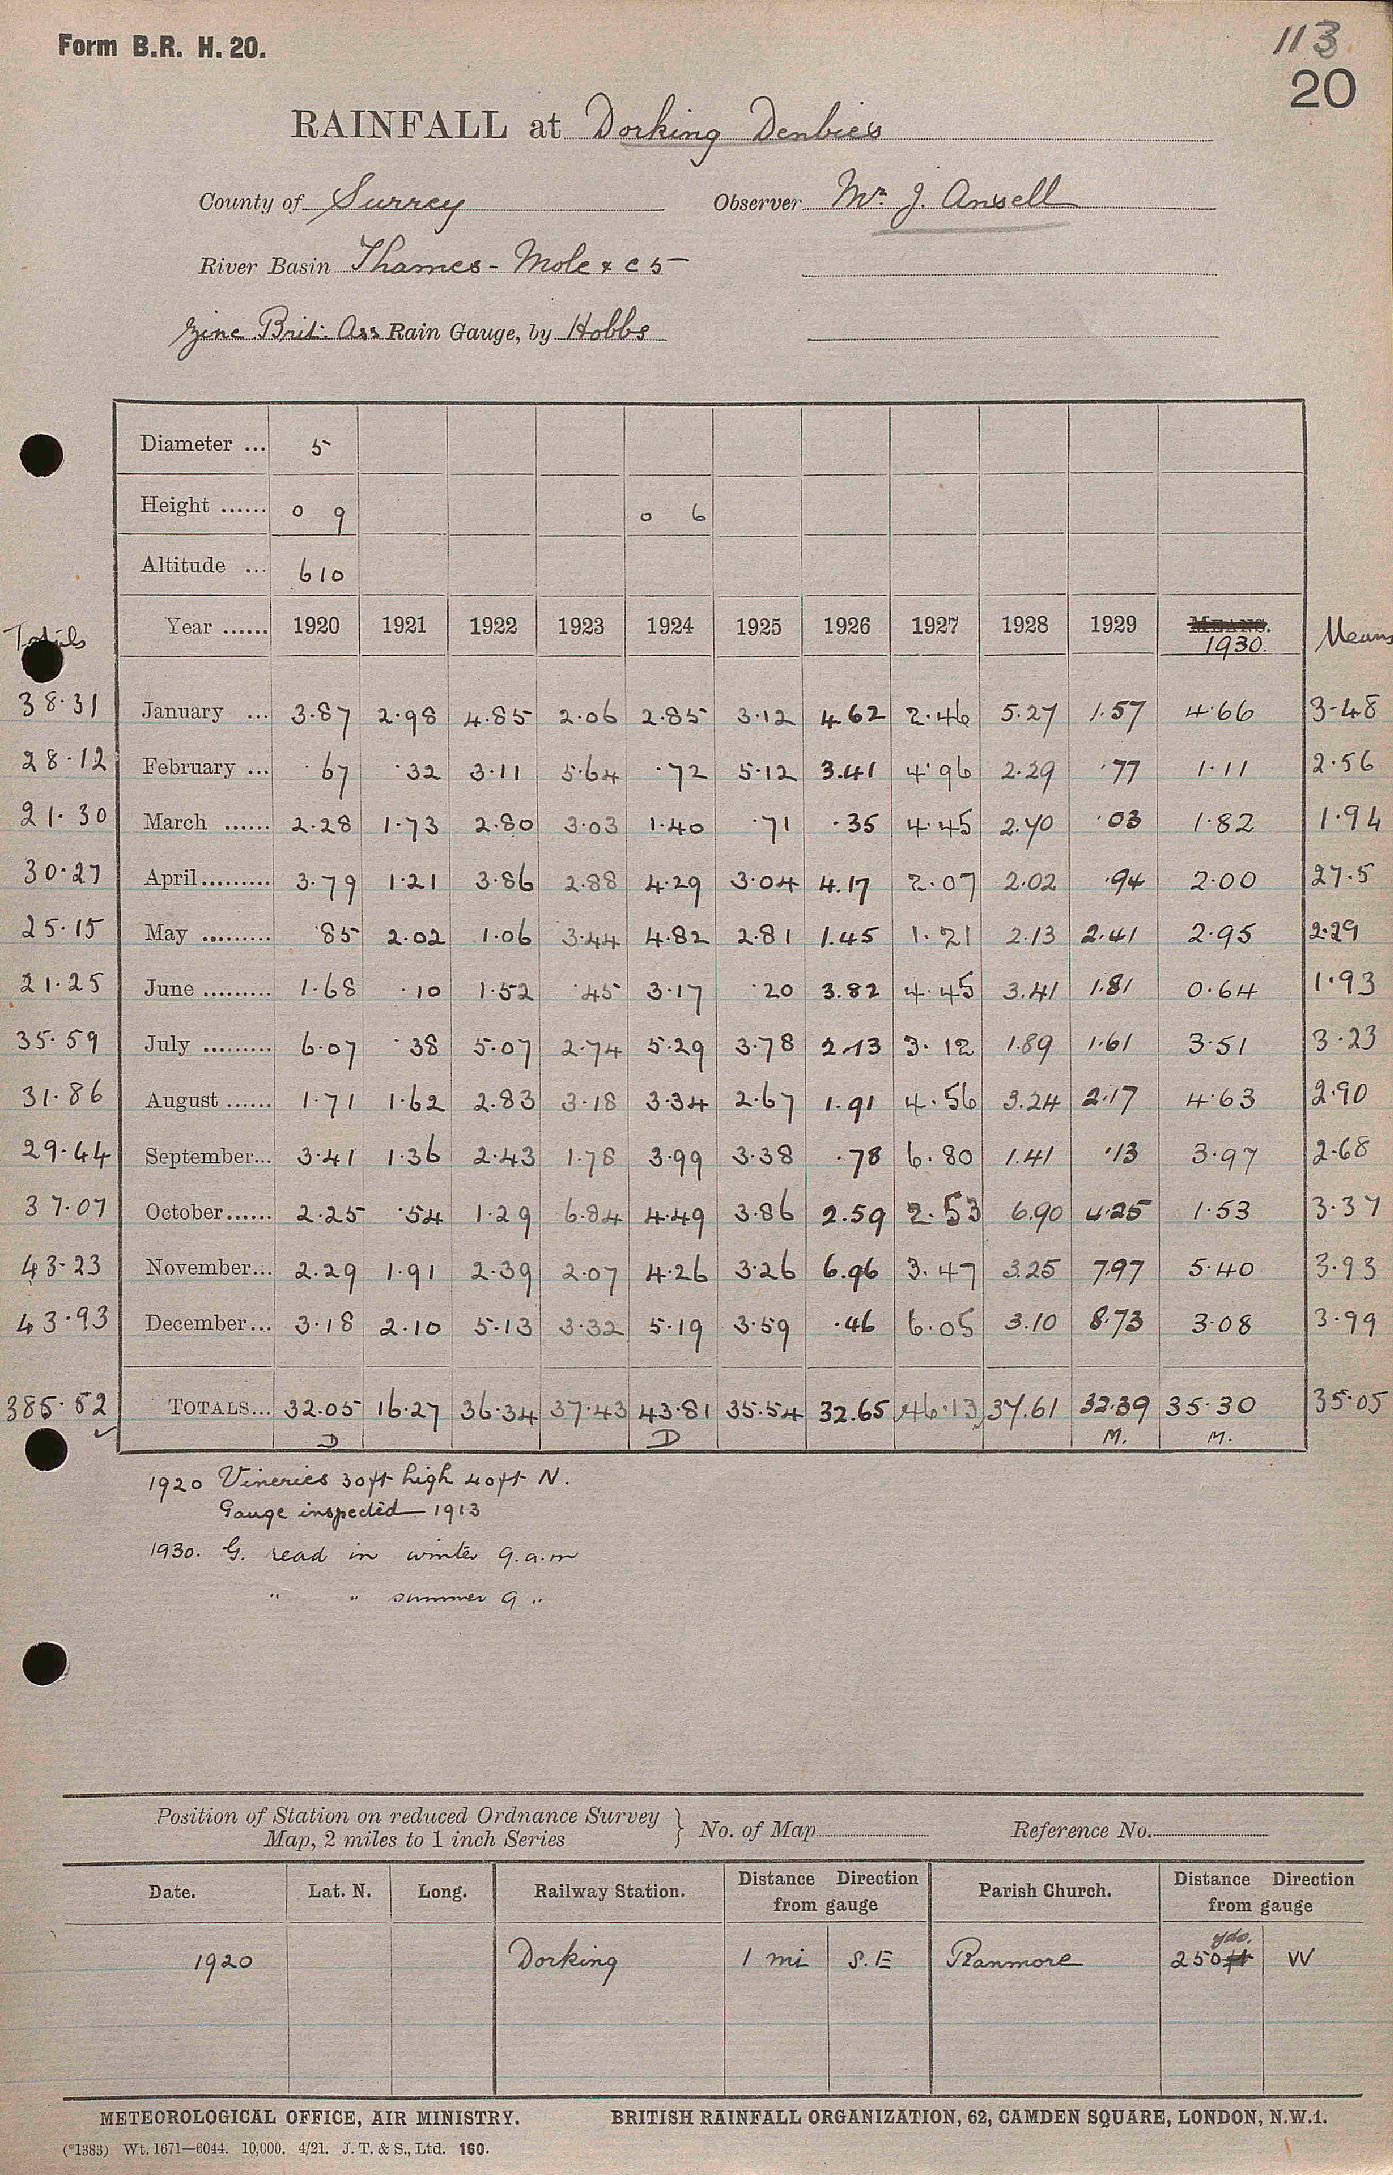 Form B.R. H. 20.
113
20
RAINFALL at Dorking Denbies
County of Surrey Observer Mr. J. Ansell
River Basin Thames - Mole & c 5
Zinc Brit. Ass Rain Gauge, by Hobbs
Diameter ... 5
Height ...... 0 9 0 6
Altitude ... 610
Totals Year ...... 1920 1921 1922 1923 1924 1925 1926 1927 1928 1929 MEANS. 1930. Means
38.31 January ... 3.87 2.98 4.85 2.06 2.85 3.12 4.62 2.46 5.27 1.57 4.66 3.48
28.12 February ... .67 .32 3.11 5.64 .72 5.12 3.41 4.96 2.29 .77 1.11 2.56
21.30 March ...... 2.28 1.73 2.80 3.03 1.40 .71 .35 4.45 2.70 .03 1.82 1.94
30.27 April......... 3.79 1.21 3.86 2.88 4.29 3.04 4.17 2.07 2.02 .94 2.00 27.5
25.15 May ......... .85 2.02 1.06 3.44 4.82 2.81 1.45 1.21 2.13 2.41 2.95 2.29
21.25 June ......... 1.68 .10 1.52 .45 3.17 .20 3.82 4.45 3.41 1.81 0.64 1.93
35.59 July ......... 6.07 .38 5.07 2.74 5.29 3.78 2.13 3.12 1.89 1.61 3.51 3.23
31.86 August ...... 1.71 1.62 2.83 3.18 3.34 2.67 1.91 4.56 3.24 2.17 4.63 2.90
29.44 September... 3.41 1.36 2.43 1.78 3.99 3.38 .78 6.80 1.41 .13 3.97 2.68
37.07 October...... 2.25 .54 1.29 6.84 4.49 3.86 2.59 2.53 6.90 4.25 1.53 3.37
43.23 November... 2.29 1.91 2.39 2.07 4.26 3.26 6.96 3.47 3.25 7.97 5.40 3.93
43.93 December... 3.18 2.10 5.13 3.32 5.19 3.59 .46 6.05 3.10 8.73 3.08 3.99
385.52 TOTALS... 32.05 16.27 36.34 37.43 43.81 35.54 32.65 46.13 37.61 32.39 35.30 35.05
D D M. M.
1920 Vineries 30ft high 40ft N.
Gauge inspected 1913
1930. G. read in winter 9.a.m
" " summer 9 "
Position of Station on reduced Ordnance Survey
Map, 2 miles to 1 inch Series } No. of Map Reference No.
Date. Lat. N. Long. Railway Station. Distance Direction from gauge Parish Church. Distance Direction from gauge
yds.
1920 Dorking 1 mi S.E Ranmore 250 ft W
METEOROLOGICAL OFFICE, AIR MINISTRY. BRITISH RAINFALL ORGANIZATION, 62, CAMDEN SQUARE, LONDON, N.W.1.
(*1383) Wt. 1671—6044. 10,000. 4/21. J. T. & S., Ltd. 160.